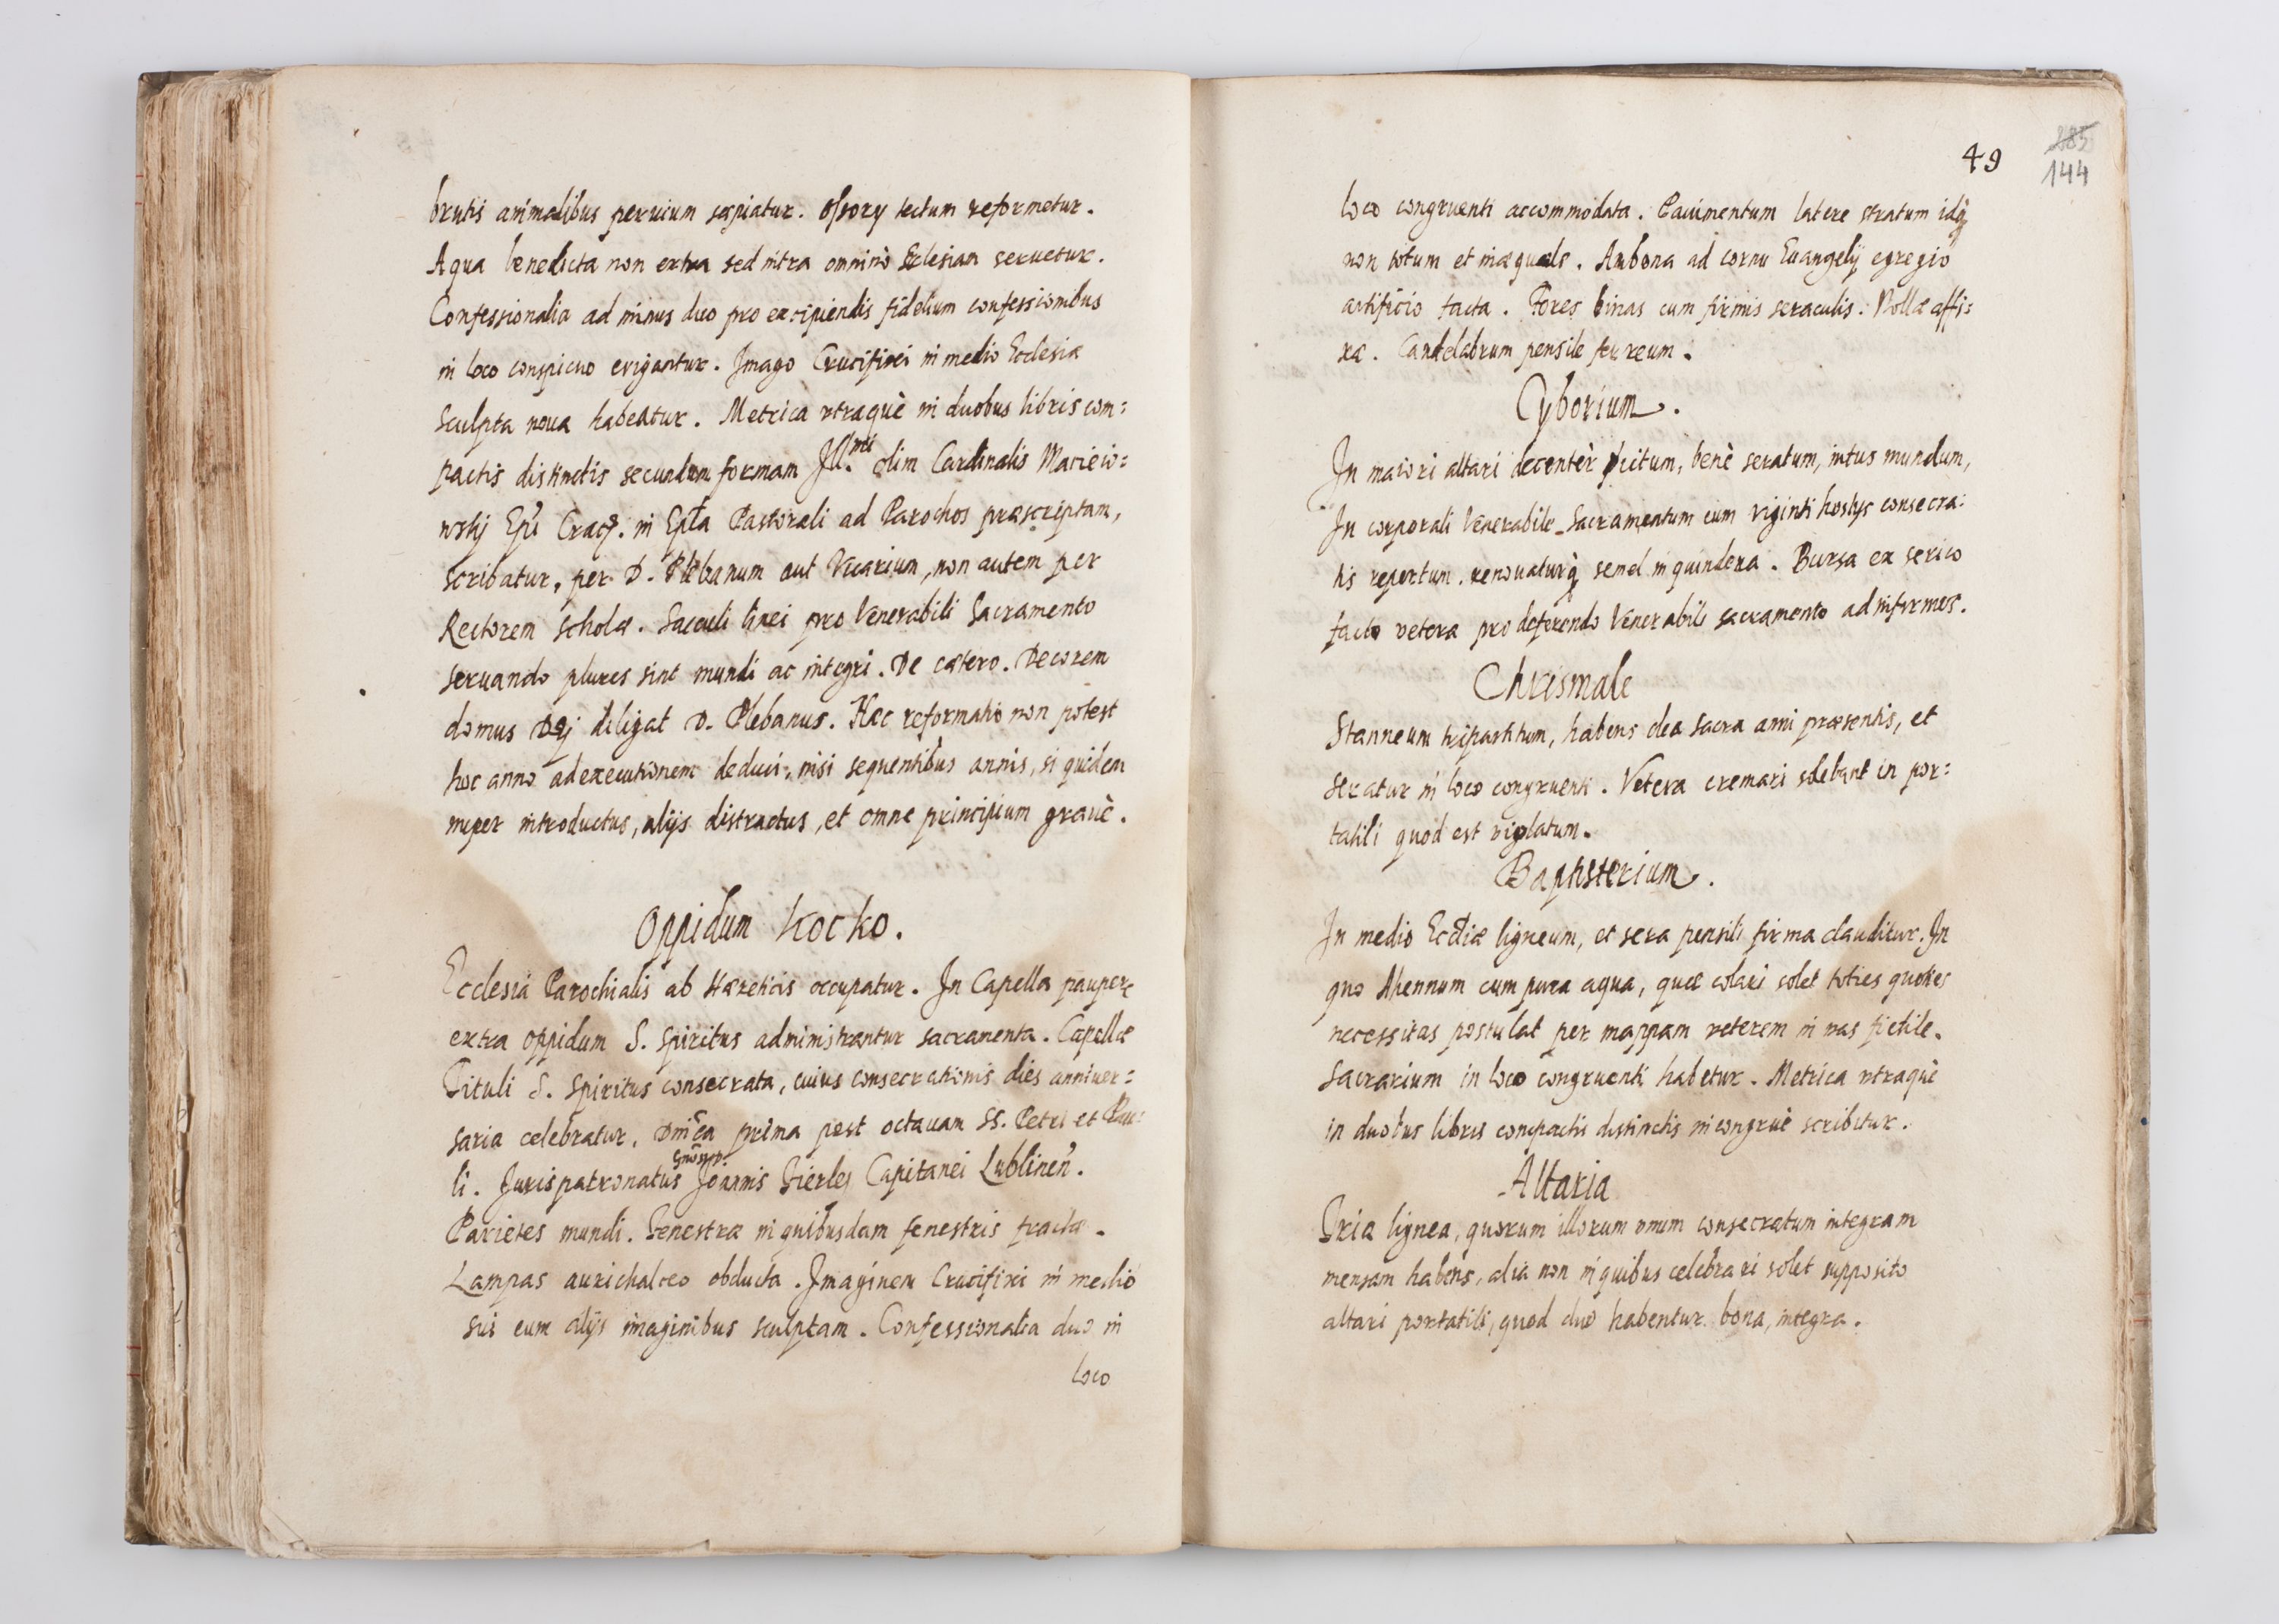 brutis animalibus peruium sæpiatur. Ossory tectum reformetur.
Aqua benedicta non extra sed intra omninò Ecclesiam seruetur.
Confessionalia ad minus duo pro excipiendis fidelium confessionibus
in loco conspicuo erigantur. Imago Crucifixi in medio Ecclesiæ
sculpta noua habeatur. Metrica vtraquè in duobus libris com=
pactis distinctis secundum formam Ill.mi olim Cardinalis Macieio=
wskj Epi Crac. in Epla Pastorali ad Parochos præscriptam,
scribatur, per D. Plebanum aut Vicarium, non autem per
Rectorem scholæ. Sacculi linei pro Venerabili Sacramento
seruando plures sint mundi ac integri. De cætero. Decorem
domus Dej diligat D. Plebanus. Hæc reformatio non potest
hoc anno ad executionem deduci, nisi sequentibus annis, si quidem
nuper introductus, alijs distractus, et omne principium grauè.
Oppidum Kocko.
Ecclesia Parochialis ab Hæreticis occupatur. In Capella paupere
extra oppidum S. Spiritus administrantur sacramenta. Capella
Tituli S. Spiritus consecrata, cuius consecrationis dies anniuer=
saria celebratur, Dnica prima post octauam SS. Petri et Pau=
li. Jurispatronatus Joannis Firlej Capitanei Lublinen.
Parietes mundi. Fenestræ in quibusdam fenestris fractæ.
Lampas aurichalceo obducta. Imaginem Crucifixi in medio
sui cum alijs imaginibus sculptam. Confessionalia duo in
loco
49
144
loco congruenti accommodata. Pauimentum latere stratum idq
non totum et inæquale. Ambona ad cornu Euangelij egregio
artificio facta. Fores binas cum firmis seraculis. Nollæ affi=
xæ. Candelabrum pensile ferreum.
Cyborium.
In maiori altari decentèr pictum, benè seratum, intus mundum,
In corporali Venerabile Sacramentum cum viginti hostys consecra=
tis repertum. renouaturq semel in quindena. Bursa ex serico
facto vetera pro deferendo Venerabili sacramento ad infirmos.
Chrismale
Stanneum tripartitum, habens olea sacra anni præsentis, et
seratur in loco congruenti. Vetera cremari solebant in por=
tatili quod est violatum.
Baptisterium.
In medio Eccliæ ligneum, et sera pensili firma clauditur. In
quo Ahennum cum pura aqua, quæ colari solet toties quoties
necessitas postulat per mappam veterem in vas fictile.
Sacrarium in loco congruenti habetur. Metrica vtraquè
in duobus libris compactis distinctis incongruè scribitur.
Altaria
Tria lignea, quorum illorum vnum consecratum integram
mensam habens, alia non in quibus celebrari solet supposito
altari portatili, quod duo habentur bona, integra.